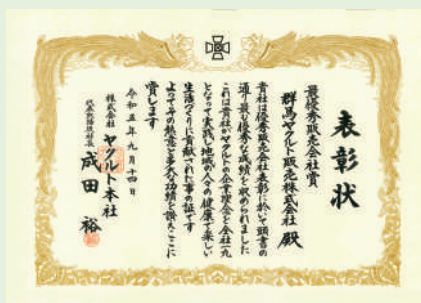 表彰状
最優秀販売会社賞
群馬ヤクルト販売株式会社 殿
貴社は優秀販売会社表彰に於いて頭書の
通り最も優秀な成績を収められました
これは貴社がヤクルトの企業理念を全社一丸
となって実践し地域の人々の健康で楽しい
生活づくりに貢献された事の証です
よってその熱意と多大な功績を讃えここに
賞します
令和五年九月十四日
株式会社 ヤクルト本社
代表取締役社長 成田 裕